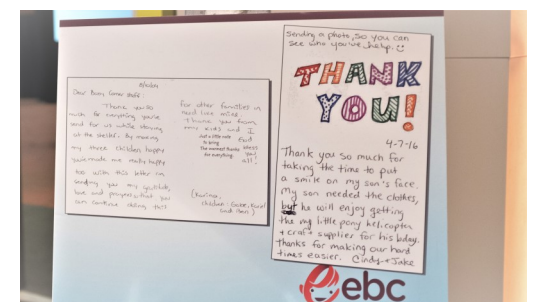 Dear Busy Corner Staff:
Thank you so
much for everything you've
done for us while staying
at the shelter. By making
my three children happy
you made me really happy
too. With this letter I'm
sending you my gratitude,
love and prayers that you
can continue doing this
for other families in
need like mine.
Thank you from
my kids and I
Just a little note
to bring
The warmest thanks
for everything.
God
bless
you
all!
(Karina,
children:
and
Sending a photo, so you can
see who you've help.
THANK
YOU!
4-7-16
Thank you so much for
taking the time to put
a smile on my son's face.
My son needed the clothes,
but he will enjoy getting
the my little pony helicopter
+ craft supplier for his bday.
Thanks for making our hard
times easier. Cindy + Jake
ebc